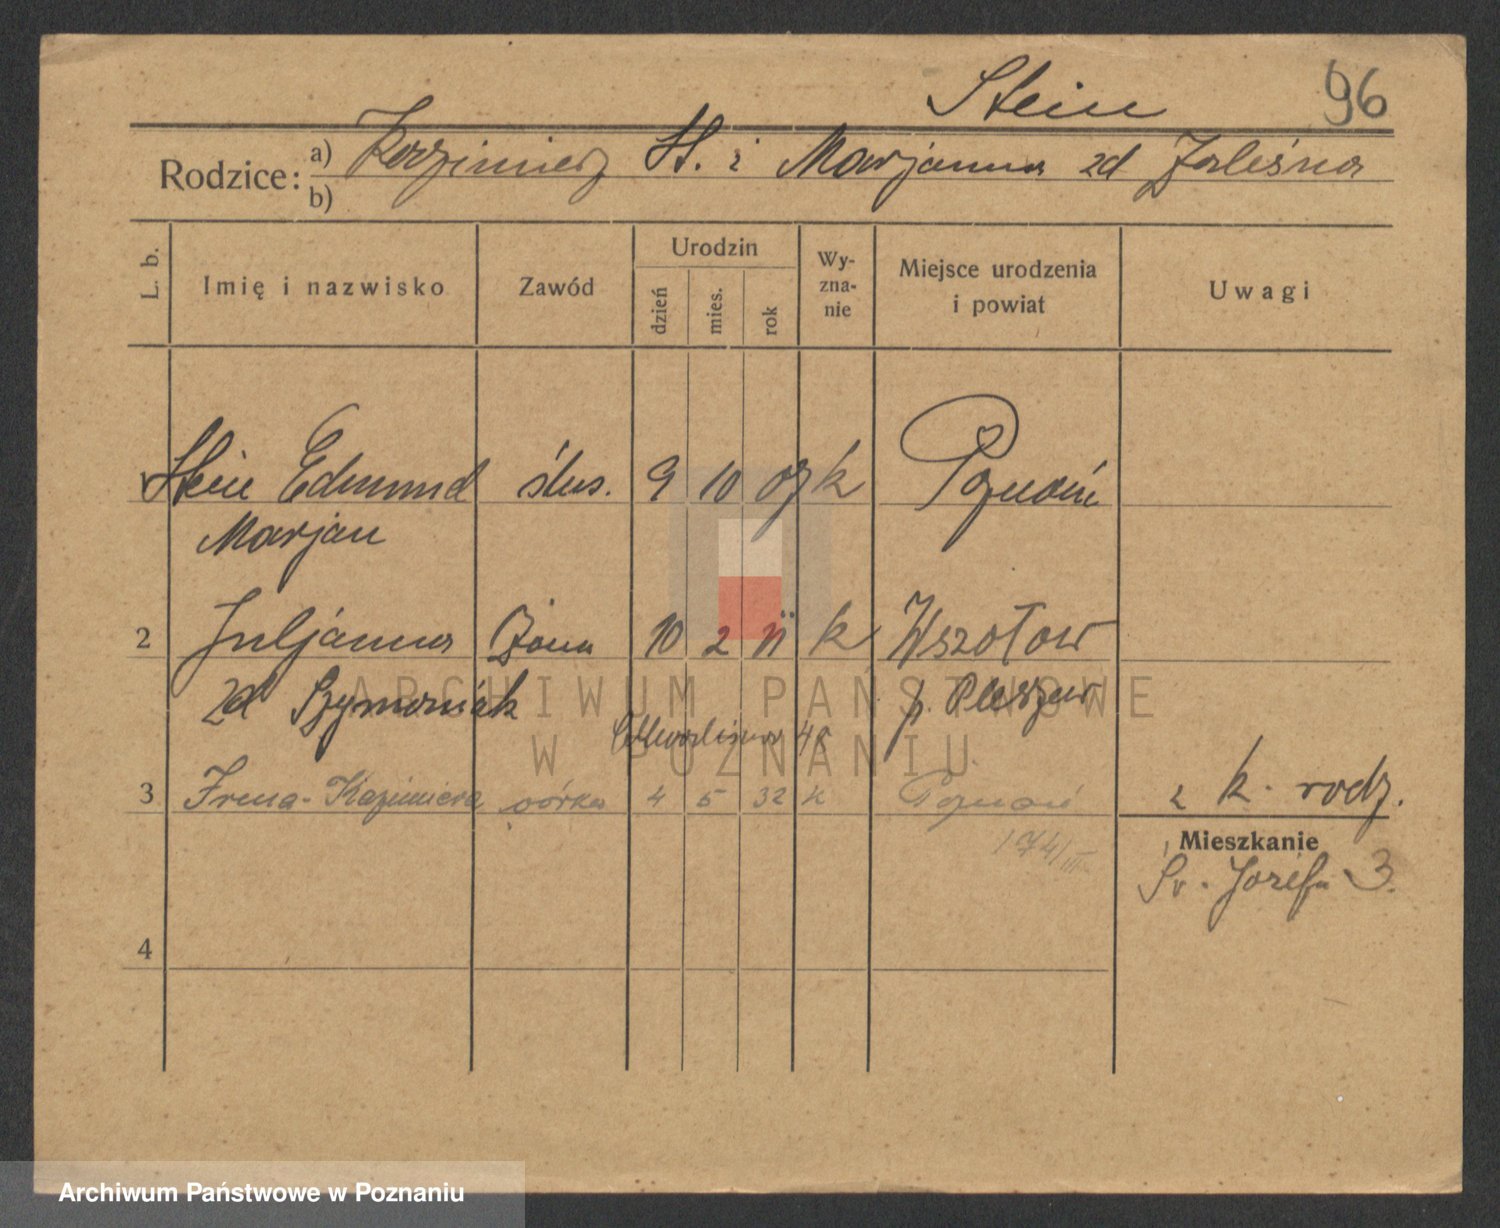 Stein 96
Rodzice: a) Kazimierz St. i Marjanna zd Zaleśna
b)
L. b. Imię i nazwisko Zawód Urodzin dzień mies. rok Wyznanie Miejsce urodzenia i powiat Uwagi
Stein Edmund ślus. 9 10 07 k Poznań
Marjan
2 Juljanna żona 10 2 11 k Wszołow
zd Szymoniak p. Pleszew
3 Irena-Kazimiera córka 4 5 32 k Poznań z k. rodz.
174/III
Mieszkanie
Św. Józefa 3.
4
ARCHIWUM PAŃSTWOWE
W POZNANIU
Archiwum Państwowe w Poznaniu